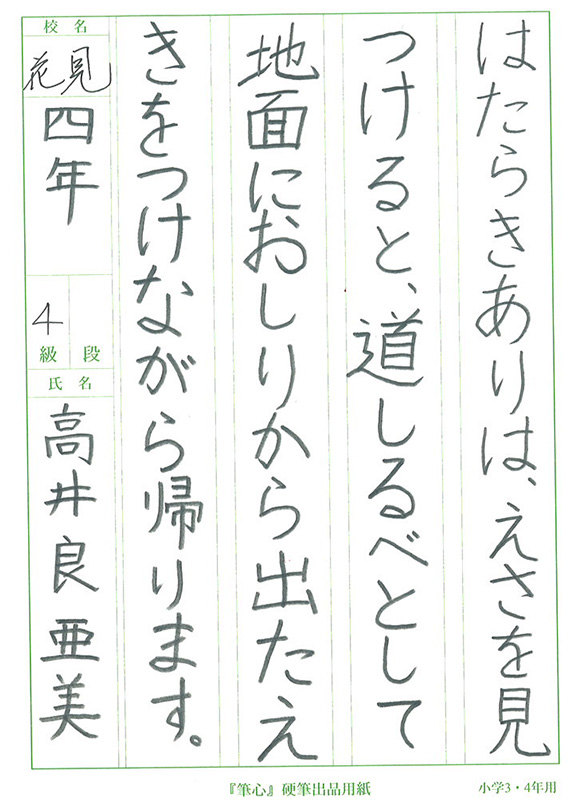 はたらきありは、えさを見
つけると、道しるべとして
地面におしりから出たえ
きをつけながら帰ります。
校名
花見
四年
4
級 段
氏名
高井良亜美
『筆心』硬筆出品用紙
小学3・4年用